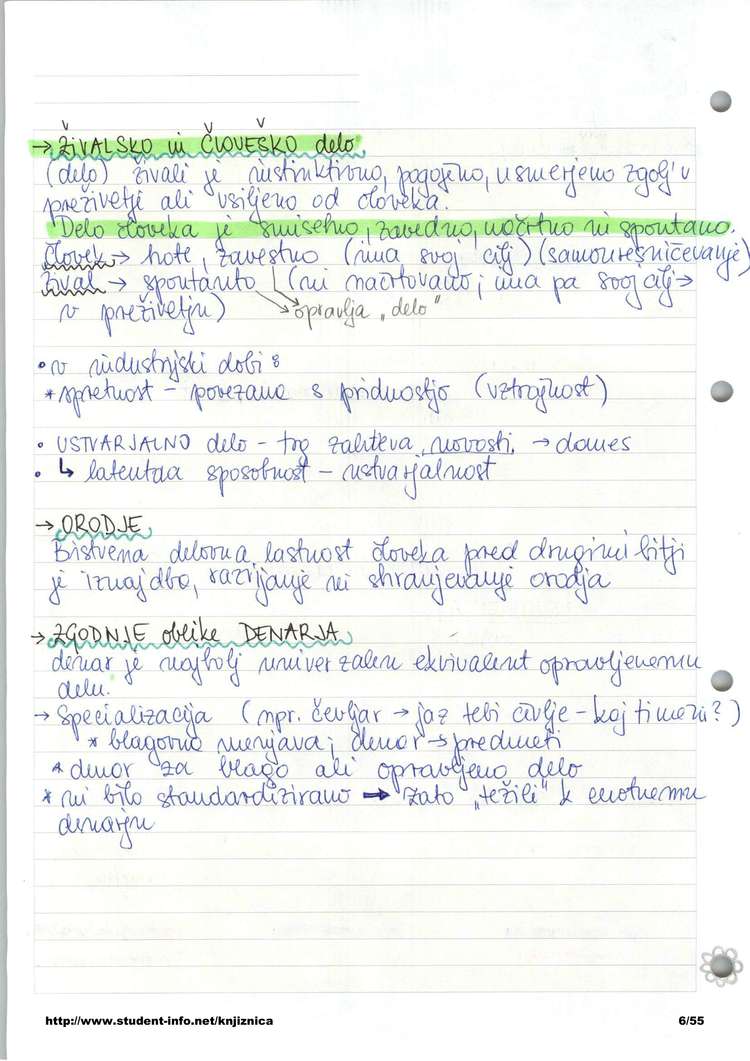 → ŽIVALSKO in ČLOVEŠKO delo
(delo) živali je instinktivno, pogojeno, usmerjeno zgolj v
preživetje ali vsiljeno od človeka.
Delo človeka je smiselno, zavedno, načrtno in spontano.
Človek → hote, zavestno (ima svoj cilj) (samouresničevanje)
Žival → spontanto (ni načrtovano; ima pa svoj cilj →
v preživetju) → opravlja „delo"
• v industrijski dobi :
* spretnost – povezana s pridnostjo (vztrajnost)
• USTVARJALNO delo – trg zahteva novosti. → danes
• ↳ latentna sposobnost – ustvarjalnost
→ ORODJE
Bistvena delovna lastnost človeka pred drugimi bitji
je iznajdba, razvijanje in shranjevanje orodja
→ ZGODNJE oblike DENARJA
denar je najbolj univerzalen ekvivalent opravljenemu
delu.
→ Specializacija (npr. čevljar → jaz tebi čevlje – kaj ti meni?)
* blagovna menjava; denar → predmeti
* denar za blago ali opravljeno delo
* ni bilo standardizirano → zato „težili" k enotnemu
denarju
http://www.student-info.net/knjiznica
6/55